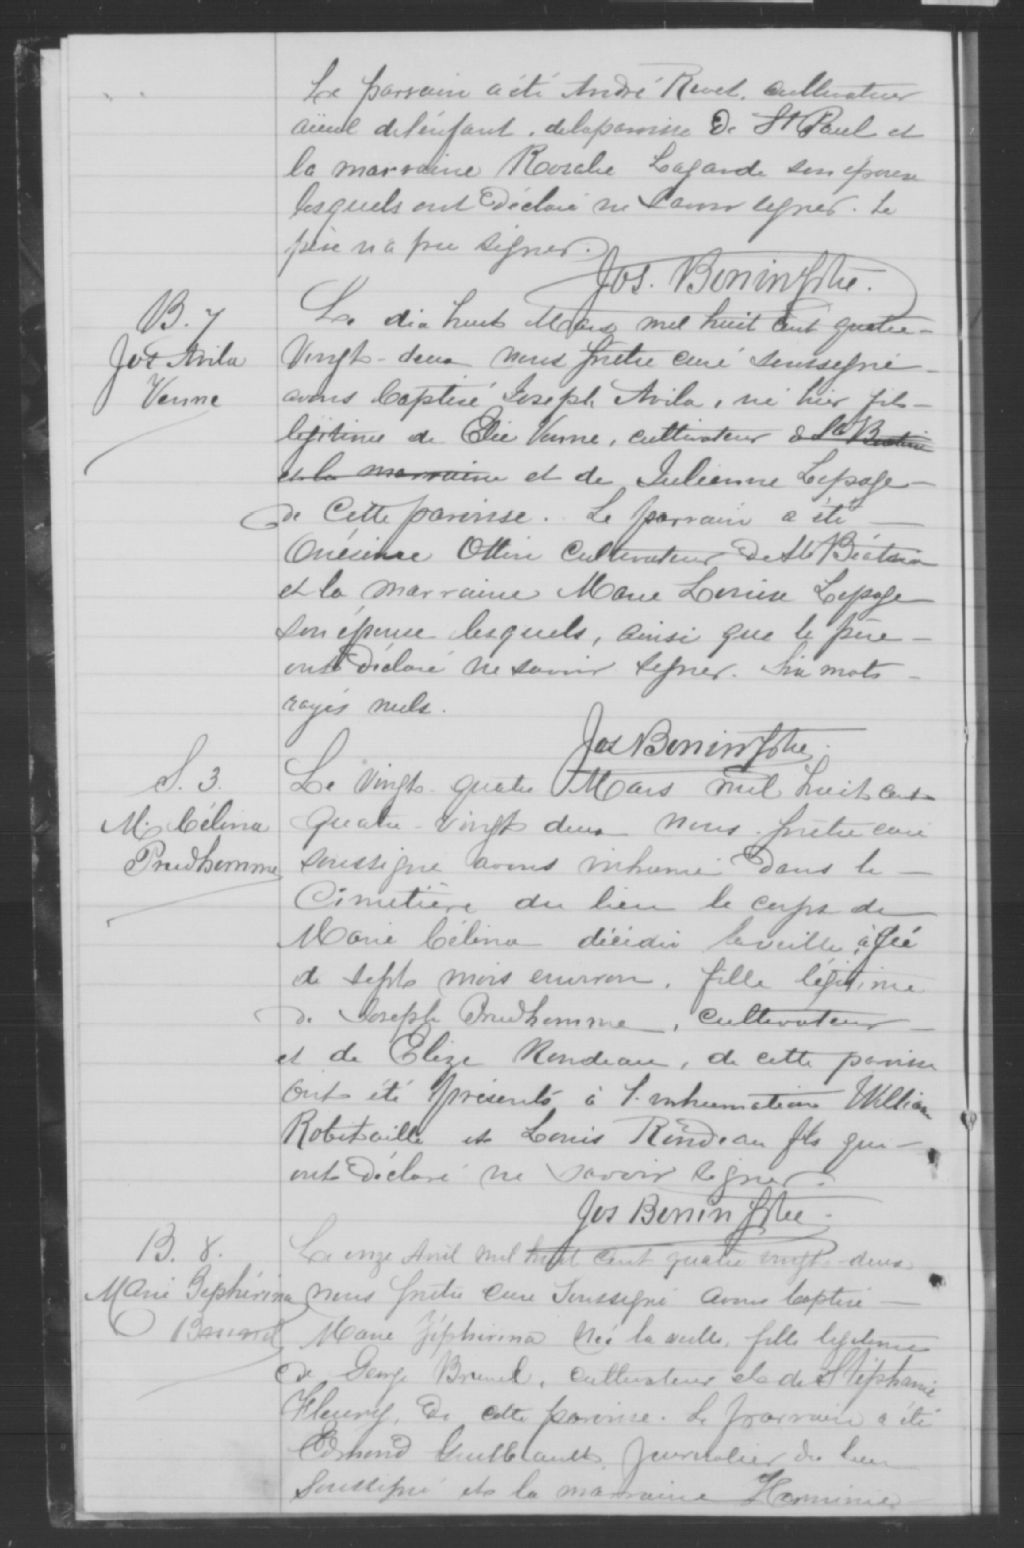 Le parrain a été André Rivet, cultivateur
aïeul de l'enfant, de la paroisse de St Paul et
la marraine Rosalie Lagarde son épouse
lesquels ont déclaré ne savoir signer. Le
père n'a pu signer.
Jos. Bonin Ptre.
B. 7
Jos Avila
Venne
Le dix huit Mars mil huit cent quatre-
Vingt-deux nous prêtre curé soussigné
avons baptisé Joseph Avila, né hier fils
légitime de Elie Venne, cultivateur de Ste Béatrix
et la marraine et de Julienne Lepage
de cette paroisse. Le parrain a été
Onésime Ottin cultivateur de Ste Béatrix
et la marraine Marie Louise Lepage
son épouse lesquels, ainsi que le père
ont déclaré ne savoir signer. Six mots
rayés nuls.
Jos Bonin Ptre.
S. 3.
M. Célina
Prudhomme
Le vingt-quatre Mars mil huit cent
quatre-vingt deux nous prêtre curé
soussigné avons inhumé dans le
Cimetière du lieu le corps de
Marie Célina décédée la veille, âgée
de sept mois environ, fille légitime
de Joseph Prudhomme, cultivateur
et de Elize Rondeau, de cette paroisse
Ont été présents à l'inhumation William
Robitaille et Louis Rondeau fils qui
ont déclaré ne savoir signer.
Jos Bonin Ptre.
B. 8.
Marie Zéphirina
Brunel
Le onze Avril mil huit cent quatre vingt-deux
nous prêtre curé soussigné avons baptisé
Marie Zéphirina née la veille, fille légitime
de George Brunel, cultivateur et de Stéphanie
Fleury, de cette paroisse. Le parrain a été
Edmond Guilbault, journalier du lieu
soussigné et la marraine Herminie